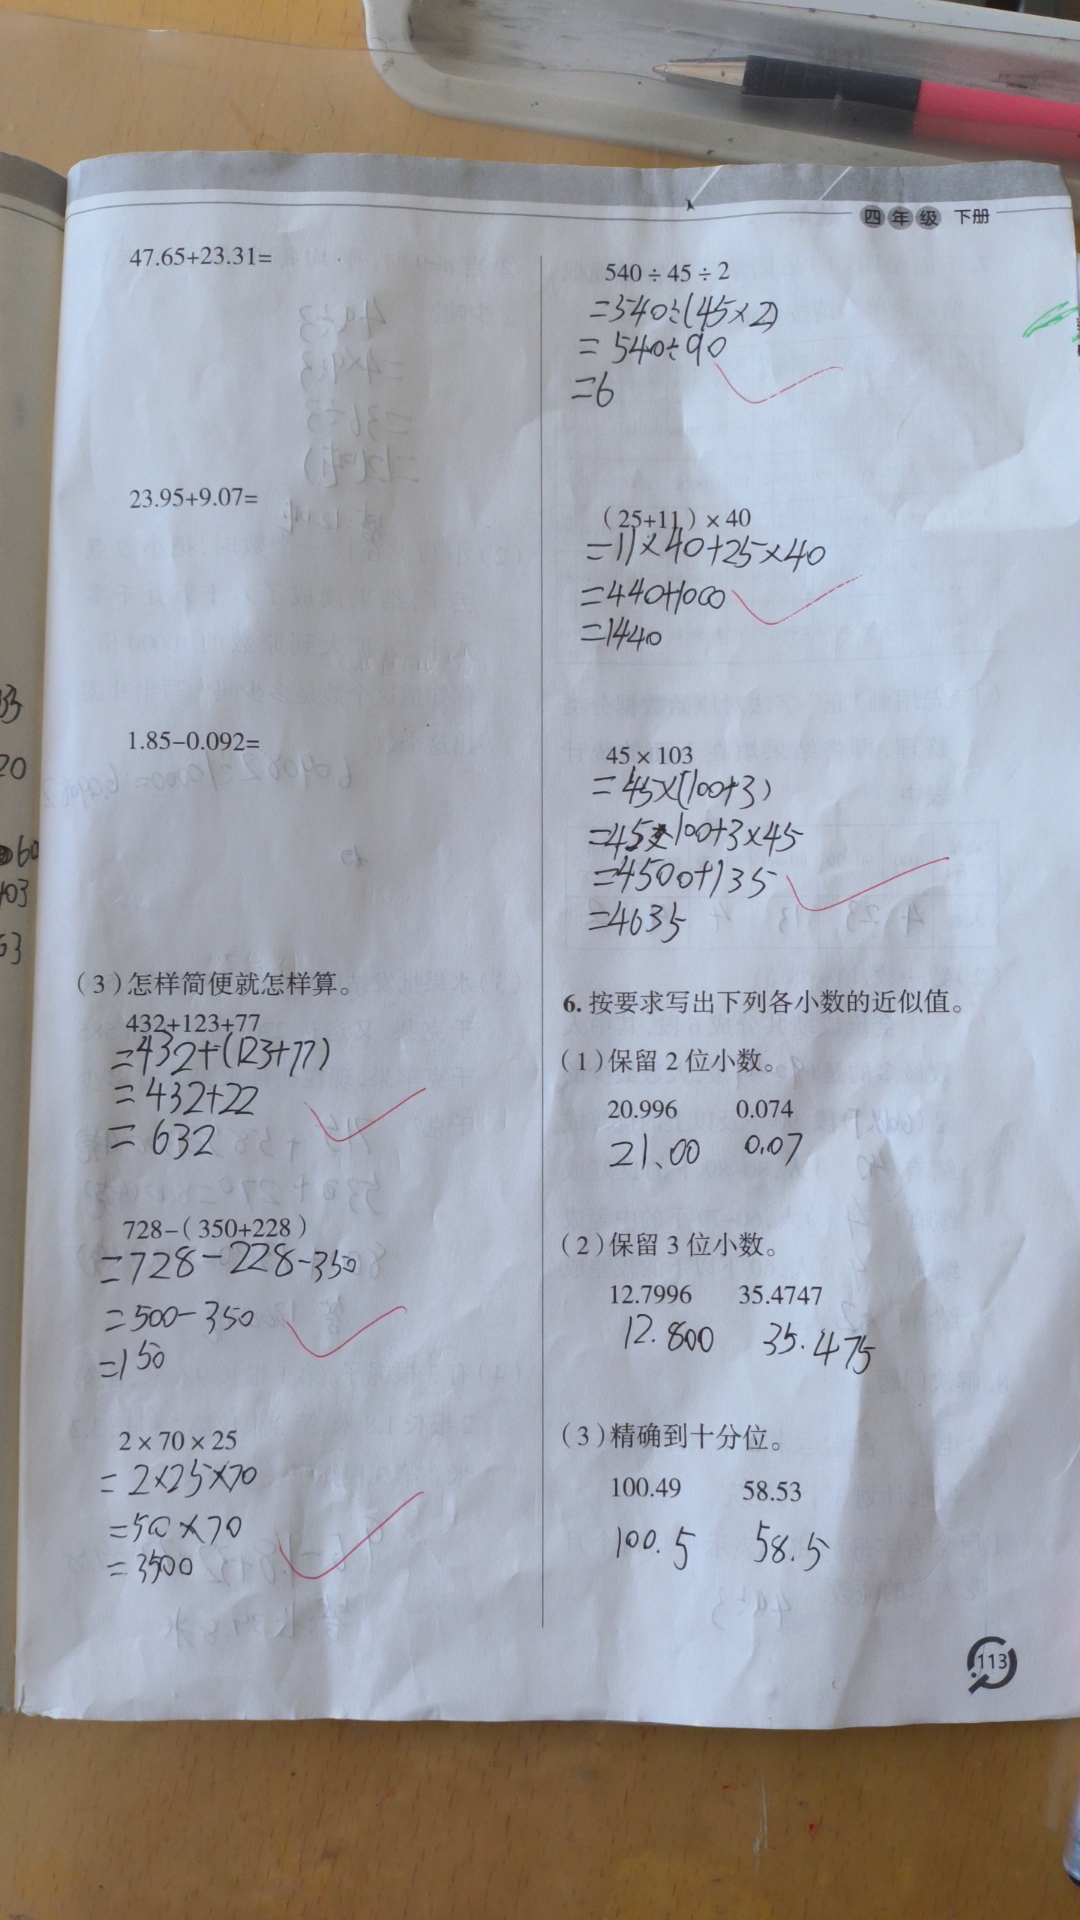 四年级 下册
47.65+23.31=
23.95+9.07=
1.85-0.092=
(3)怎样简便就怎样算。
432+123+77
=432+(123+77)
=432+22
=632
728-(350+228)
=728-228-350
=500-350
=150
2×70×25
=2×25×70
=50×70
=3500
540÷45÷2
=540÷(45×2)
=540÷90
=6
(25+11)×40
=11×40+25×40
=440+1000
=1440
45×103
=45×(100+3)
=45×100+3×45
=4500+135
=4635
6.按要求写出下列各小数的近似值。
(1)保留2位小数。
20.996 0.074
21.00 0.07
(2)保留3位小数。
12.7996 35.4747
12.800 35.475
(3)精确到十分位。
100.49 58.53
100.5 58.5
113